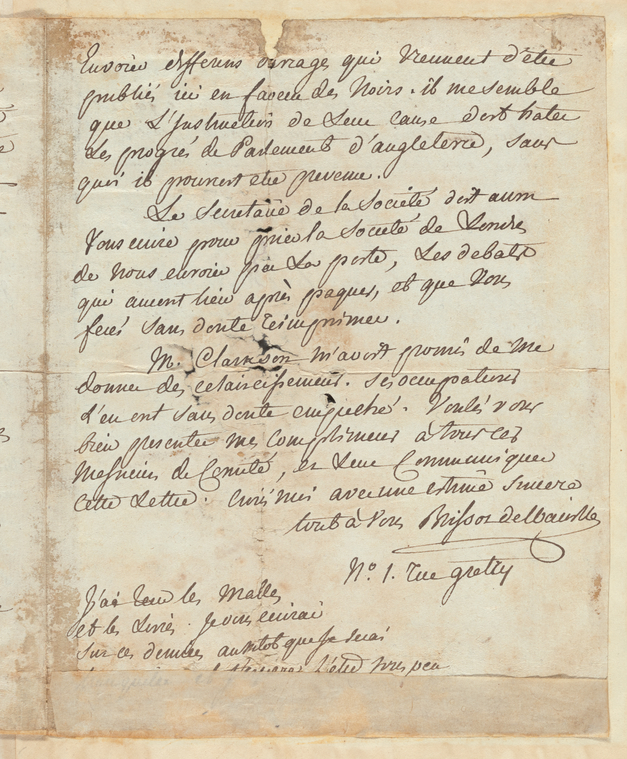 Envoier differens ouvrages qui viennent d'etre
publiés ici en faveur des Noirs. il me semble
que L'instruction de Leur cause doit hater
Les progrés de Parlement d'angleterre, sans
quoi il pourroit etre prevenu.
Le Secretaire de la Societé doit aussi
Vous ecrire pour prier la Societé de Londres
de nous envoier par La poste, Les debats
qui auront lieu après paques, et que Vous
ferés sans doute reimprimer.
M. Clarkson m'avoit promis de me
donner des eclaircissemens. Ses occupations
l'en ont sans doute empeché. Voulés vous
bien presenter mes Complimens à tous ces
Messieurs du Comité, et Leur Communiquer
cette Lettre. Croiés moi avec une estime sincere
tout à Vous Brissot de Warville
N.º 1. rue gretry
J'ai les Malles
et les Livres. Je vous ecrirai
sur ces derniers aussitot que je serai
L'etre vous peu